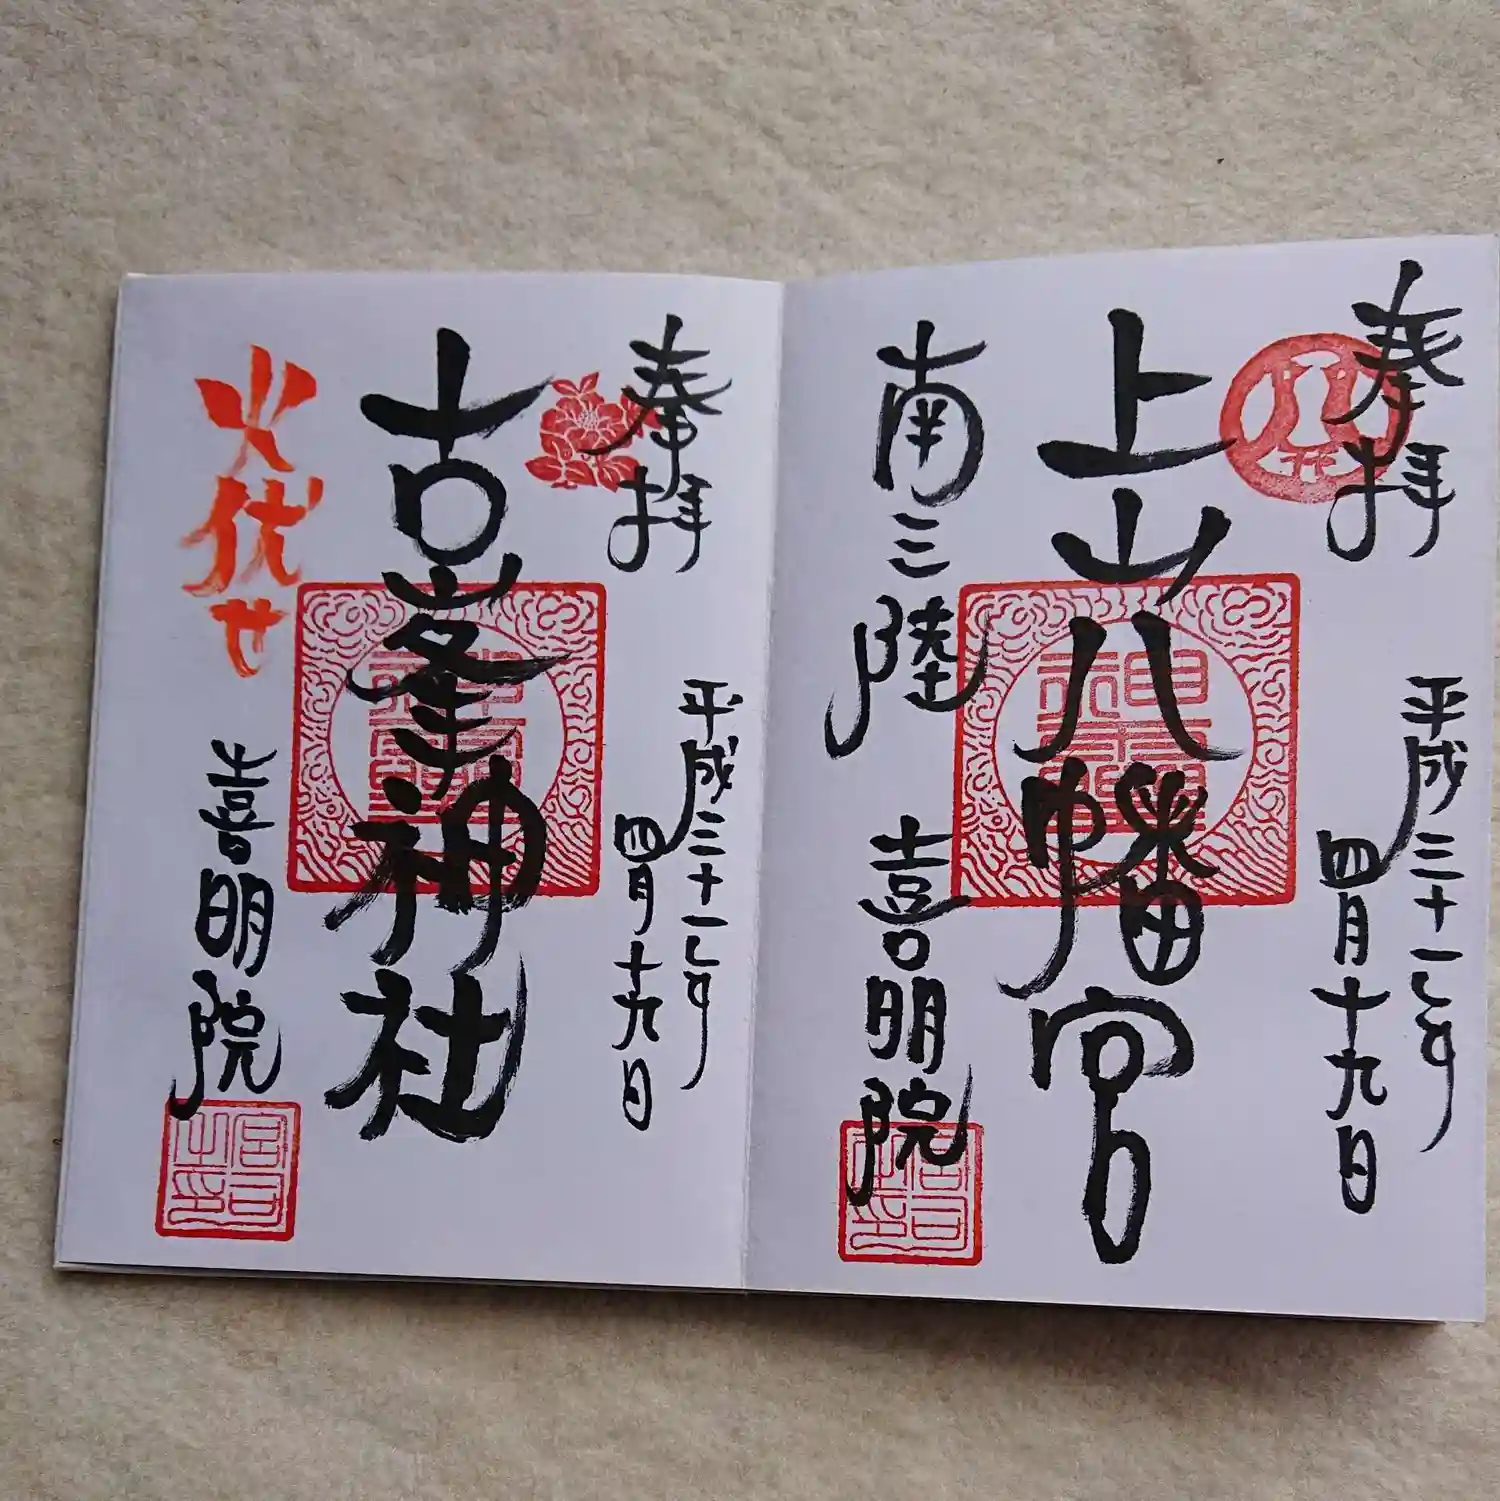 奉拝
平成三十一年
四月十九日
上山八幡宮
南三陸
喜明院
奉拝
平成三十一年
四月十九日
古峯神社
火伏せ
喜明院